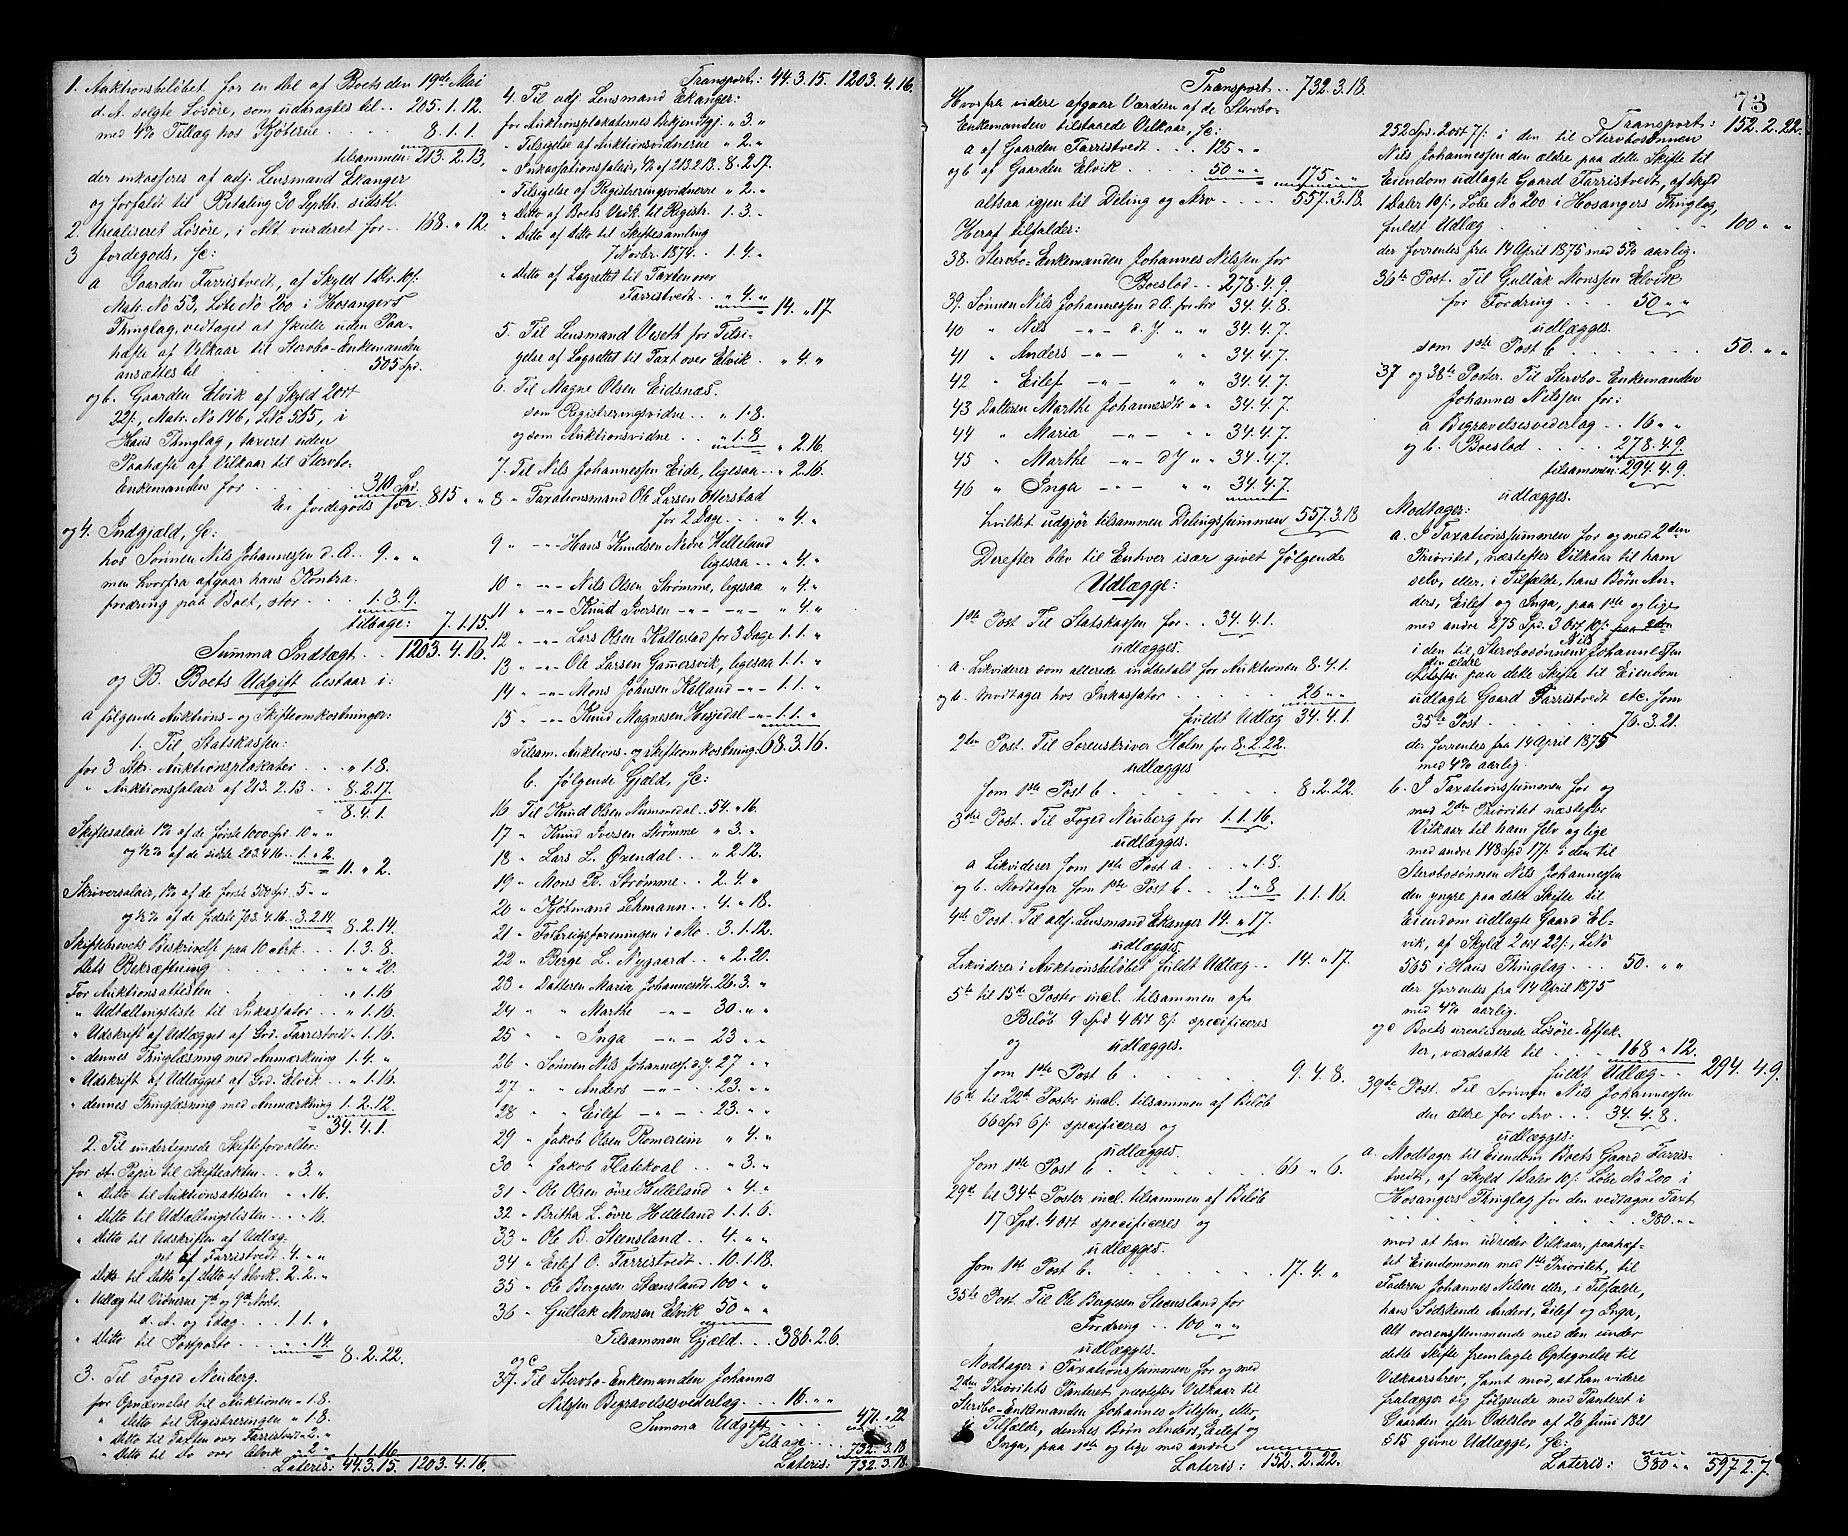 1. Auktionsbeløbet for en Del af Boets den 19de Mai
d. A. solgte Løsøre, som uddragtes til .. 205.1.12.
med 4% Tillæg hos Kjøberne .... 8.1.1.
tilsammen: 213.2.13.
der inkasseres af adj. Lensmand Ekanger
og forfaldt til Betaling 30 Septbr. sidstl.
2. Urealiseret Løsøre, i Alt vurderet for .. 168. " 12.
3 Jordegods, Jc:
a Gaarden Farristvedt, af Skyld 1 Dlr. 10/.
Matr. No 53, Løbe No 200 i Hosangers
Thinglag, vedtaget at skulle uden Paa-
hæfte af Vilkaar til Stervbo-Enkemanden
ansættes til .... 505 Spd.
og b. Gaarden Elvik af Skyld 2 ort
22/., Matr. No 146, L No 565, i
Haus Thinglag, taxeret uden
Paahæfte af Vilkaar til Stervbo-
Enkemanden for .... 310 Spd.
Er Jordegods for 815 " "
og 4. Indgjæld, Jc:
hos Sønnen Nils Johannessen d. A. .. 9. " "
men hvorfra afgaar hans Kontra-
fordring paa Boet, stor .. 1.3.9.
tilbage: 7.1.15.
Summa Indtægt .. 1203.4.16.
og B. Boets Udgift bestaar i:
a følgende Auktions- og Skifteomkostninger:
1. Til Statskassen:
for 3 Stk. Auktionsplakater .. " 1.8.
" Auktionssalair af 213.2.13 .. 8.2.17.
8.4.1.
Skiftesalair 1% af de første 1000 Spd. 10 " "
og ½% af de sidste 203.4.16 .. 1. " 2.
11. " 2.
Skriversalair, 1% af de første 500 Spd. 5 " "
og ½% af de sidste 703.4.16. 3.2.14.
8.2.14.
Skiftebrevets Beskrivelse paa 10 Ark .. 1.3.8.
Dets Bekræftning .. " " 20.
For Auktionsattesten .. " 1.16
" Udtællingsliste til Inkassator .. " 1.16.
" Udskrift af Udlægget af Grd. Farristvedt .. " 1.16.
" dennes Thinglæsning med Anmærkning 1.4. "
" Udskrift af Udlægget af Grd. Elvik .. " 1.16.
" dennes Thinglæsning med Anmærkning 1.2.12.
34.4.1.
2. Til undertegnede Skifteforvalter:
for st. Papir til Skifteakten .. " 3 "
" Ditto til Auktionsattesten " " 16.
" Ditto til Udtællingslisten .. " " 16.
" Ditto til Udskriften af Udlæg-
get af Farristvedt .. 4. " "
" Ditto til Ditto af Ditto af Elvik .. 2.2. "
" Udlæg til Vidnerne 7de og 9de Novbr.
d. A. og idag .. 1.1. "
" Ditto til Postporto .. " " 14.
8.2.22.
3. Til Foged Neuberg.
for Opnævnelse til Auktionen " 1.8.
" Ditto til Registreringen " 1.8.
" Ditto til Taxten over Farristvedt " 2. "
" Ditto til Do over Elvik .. " 2 "
1.1.16
Lateris: 44.3.15. 1203.4.16.
Transport: 44.3.15. 1203.4.16.
4. Til adj. Lensmand Ekanger:
for Auktionsplakaternes Bekjendtgj. " 3. "
" Tilsigelse af Auktionsvidnerne " 2. "
" Inkassationssalair, 4% af 213.2.13. 8.2.17.
" Tilsigelse af Registreringsvidnerne " 2. "
" Ditto af Boets Vedk. til Registr. 1.3. "
" Ditto af Ditto til Skiftesamling
7 Novbr. 1874 .. 1.4. "
" Ditto af Lagrettet til Taxten over
Farristvedt .. " 4. "
14. " 17
5. Til Lensmand Viseth for Tilsi-
gelse af Lagrettet til Taxt over Elvik .. " 4. "
6. Til Magne Olsen Eidsnæs
som Registreringsvidne .. " 1.8.
og som Auktionsvidne .. " 1.8
" 2.16.
7. Til Nils Johannessen Eide, ligesaa .. " 2.16.
8 " Taxationsmand Ole Larsen Otterstad
for 2 Dage .. " 4. "
9 " -"- Hans Knudsen Nedre Helleland
ligesaa .. " 4. "
10 " -"- Nils Olsen Strømme, ligesaa " 4. "
11 " -"- Knud Iversen -"- -"- " 4. "
12 " -"- Lars Olsen Kallestad for 3 Dage 1.1. "
13 " -"- Ole Larsen Gammersvik, ligesaa 1.1. "
14 " -"- Mons Johnsen Kalland -"- 1.1. "
15 " -"- Knud Magnesen Hesjedal -"- 1.1. "
Tilsam. Auktions- og Skifteomkostning. 68.3.16.
b. følgende Gjæld, Jc:
16 Til Knud Olsen Nummedal .. 54. " 16.
17 " Knud Iversen Strømme " 3. "
18 " Lars L. Øxendal .. " 2.12.
19 " Mons R. Strømme .. 2.4. "
20 " Kjøbmand Lehmann .. 4. " 18.
21 " Forbrugsforeningen i Mo. 3.1.12.
22 " Berge L. Nygaard .. " 2.20.
23 " Datteren Maria Johannesdtr. 26.3. "
24 " " Marthe -"- 30. " "
25 " " Inga -"- 23 " "
26 " Sønnen Nils Johanness. d. y. 27 " "
27 " " Anders -"- .. 23. " "
28 " " Eilef -"- .. 23. " "
29 " Jakob Olsen Romereim " 4. "
30 " Jakob Flatekval .. " 3. "
31 " Ole Olsen øvre Helleland " 4. "
32 " Britha L. øvre Helleland 1.1.6.
33 " Ole B. Steensland .. 4. " "
34 " Eilef O. Farristvedt .. 10.1.18.
35 " Ole Bergesen Stensland 100 " "
36 " Gullak Monsen Elvik .. 50 " "
Tilsammen Gjæld .. 386.2.6.
og c
37. Til Stervbo-Enkemanden Johannes
Nilssen Begravelsesvederlag .. 16. " "
Summa Udgift .. 471. " 22
Tilbage .. 732.3.18
Lateris: 732.3.18.
73
Transport .. 732.3.18.
Hvorfra videre afgaar Værdien af de Stervbo-
Enkemanden tilstaaede Vilkaar, Jc:
a af Gaarden Farristvedt .. 125 " "
og b af Gaarden Elvik .. 50 " "
175 " "
altsaa igjen til Deling og Arv .. 557.3.18.
Heraf tilfalder:
38. Stervbo-Enkemanden Johannes Nilssen for
Boeslod .. 278.4.9.
39. Sønnen Nils Johannessen d. A. for Arv 34.4.8.
40 " Nils -"- d. y " " 34.4.7.
41 " Anders -"- " " 34.4.7.
42 " Eilef -"- " " 34.4.7.
43 Datteren Marthe Johannesdtr " " 34.4.7.
44 " Maria -"- " " 34.4.7.
45 " Marthe -"- d y " " 34.4.7.
46 " Inga -"- " " 34.4.7.
hvilket udgjør tilsammen Delingssummen 557.3.18
Derefter blev til Enhver især givet følgende
Udlægge:
1ste Post Til Statskassen for .. 34.4.1.
udlægges.
a. Likviderer som allerede indbetalt for Auktionen 8.4.1.
og b. Modtager hos Inkassator .. 26 " "
fuldt Udlæg 34.4.1.
2den Post. Til Sorenskriver Holm for 8.2.22.
udlægges
som 1ste Post b .. 8.2.22.
3die Post. Til Foged Neuberg for 1.1.16.
udlægges.
a Likviderer som 1ste Post a. .. " 1.8.
og b. Modtager som 1ste Post b .. 1 " 8
1.1.16.
4de Post. Til adj. Lensmand Ekanger 14. " 17.
udlægges.
Likvideres i Auktionsbeløbet fuldt Udlæg .. 14. " 17.
5te til 15de Poster incl. tilsammen af
Beløb 9 Spd 4 Ort 8/. specificeres
og udlægges.
som 1ste Post b .. 9.4.8.
16de til 22de Poster incl. tilsammen af Beløb
66 Spd 6/. specificeres og
udlægges.
som 1ste Post b .. 66 " 6.
29de til 34te Poster incl. tilsammen af Beløb
17 Spd. 4 Ort specificeres og
udlægges.
som 1ste Post b. .. 17.4. "
35te Post. Til Ole Bergesen Steensland for
Fordring .. 100 " "
udlægges.
Modtager i Taxationssummen for og med
2den Prioritets Panteret, næstefter Vilkaar til
Stervbo-Enkemanden Johannes Nilssen, eller,
i Tilfælde, dennes Børn Anders, Eilef og
Inga, paa 1ste og lige med andre
Lateris: 152.2.22.
Transport: 152.2.22.
252 Spd. 2 ort 7/. i den til Stervbosønnen
Nils Johannessen den ældre paa dette Skifte til
Eiendom udlagte Gaard Farristvedt, af Skyld
1 Daler 10/., Løbe No 200 i Hosangers Thinglag,
fuldt Udlæg .. 100 " "
der forrentes fra 14 April 1875 med 5% aarlig.
36te Post. Til Gullak Monssen Elvik
for Fordring .. 50 " "
udlægges.
som 1ste Post b .. 50. " "
37 og 38te Poster. Til Stervbo-Enkemanden
Johannes Nilssen for:
a Begravelsesvederlag .. 16 " "
og b. Boeslod .. 278.4.9.
tilsammen: 294.4.9.
udlægges.
Modtager:
a. I Taxationssummen for og med 2den
Prioritet, næstefter Vilkaar til ham
selv, eller, i Tilfælde, hans Børn An-
ders, Eilef og Inga, paa 1ste og lige
med andre 275 Spd. 3 Ort 10/. paa 2den
i den til Stervbosønnen Nils Johannessen
den ældre paa dette Skifte til Eiendom
udlagte Gaard Farristvedt etc. som
35te Post .. 76.3.21.
der forrentes fra 14 April 1875
med 4% aarlig.
b. I Taxationssummen for og
med 2den Prioritet næstefter
Vilkaar til ham selv og lige
med andre 148 Spd 17/. i den til
Stervbosønnen Nils Johannessen
den yngre paa dette Skifte til
Eiendom udlagte Gaard El-
vik, af Skyld 2 ort 22/., L No
565 i Haus Thinglag .. 50. " "
der forrentes fra 14 April 1875
med 4% aarlig.
og c Boets urealiserede Løsøre-Effek-
ter, værdsatte til .. 168 " 12.
fuldt Udlæg .. 294.4.9.
39te Post. Til Sønnen Nils Johannessen
den ældre for Arv .. 34.4.8.
udlægges:
a. Modtager til Eiendom Boets Gaard Farris-
tvedt, af Skyld 1 Daler 10/. Løbe No 200 i
Hosangers Thinglag for den vedtagne Taxt
.. 380. " "
mod at han udreder Vilkaar, paahæf-
tet Eiendommen med 1ste Prioritet, til
Faderen Johannes Nilsen eller, i Tilfælde,
hans Sødskende Anders, Eilef og Inga,
Alt overensstemmende med den under
dette Skifte fremlagte Optegnelse til
Vilkaarsbrev, samt mod, at han videre
fralægger sig følgende med Panteret i
Gaarden efter Odelslov af 26 Juni 1821
§ 15 givne Udlægge, Jc:
Lateris: 380 " " 597.2.7.